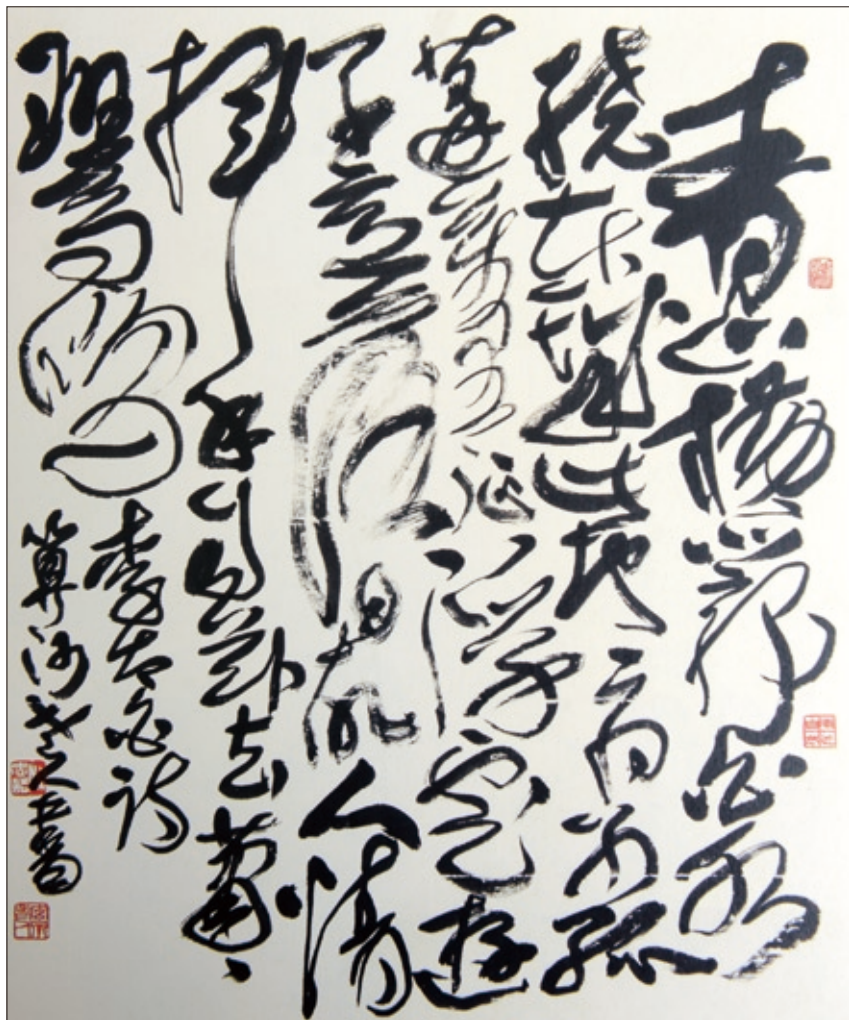 青山横北郭白水
绕东城此地一为别孤
蓬万里征浮云游
子意落日故人情
挥手自兹去萧萧
班马鸣
李太白诗